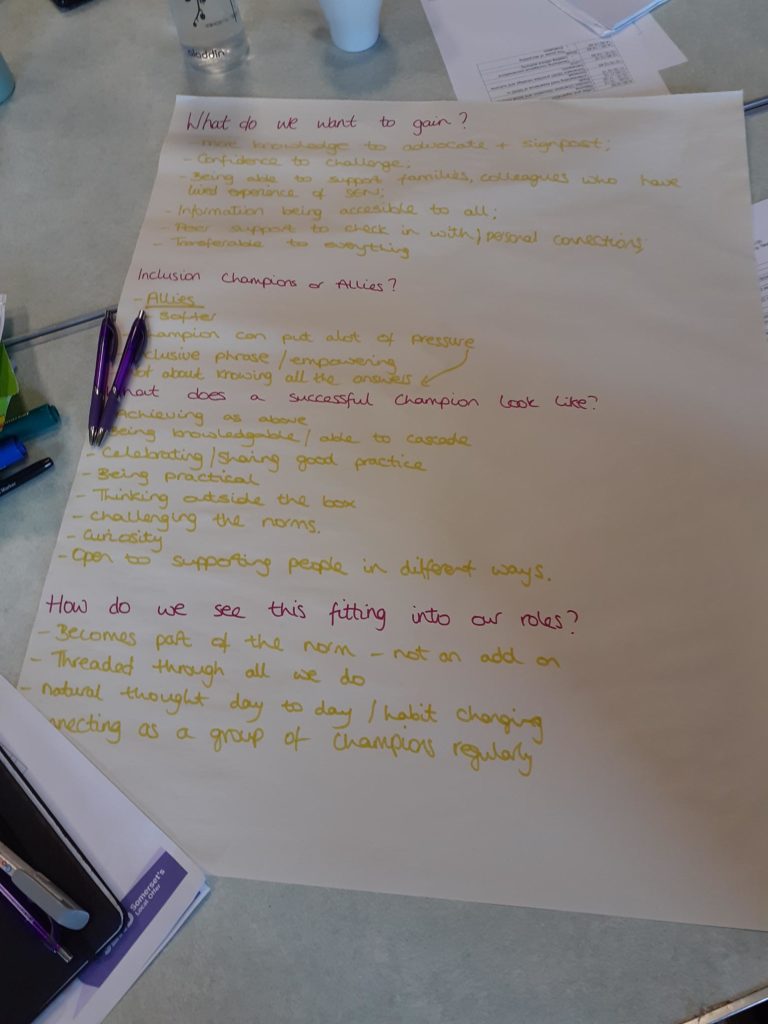 Aladdin
What do we want to gain?
- more knowledge to advocate + signpost;
- Confidence to challenge;
- Being able to support families, colleagues who have
lived experience of SEN;
- Information being accesible to all;
- Peer support to check in with / personal connections;
- Transferable to everything
Inclusion Champions or Allies?
- Allies
- Softer
hampion can put alot of pressure
clusive phrase / empowering
ot about knowing all the answers
hat does a successful Champion look like?
Achieving as above
Being knowledgable / able to cascade
- Celebrating / Sharing good practice
- Being practical
- Thinking outside the box
- Challenging the norms.
- Curiosity
- Open to supporting people in different ways.
How do we see this fitting into our roles?
- Becomes part of the norm - not an add on
- Threaded through all we do
- natural thought day to day / habit changing
nnecting as a group of champions regularly
Somerset's
Local Offer
Marker